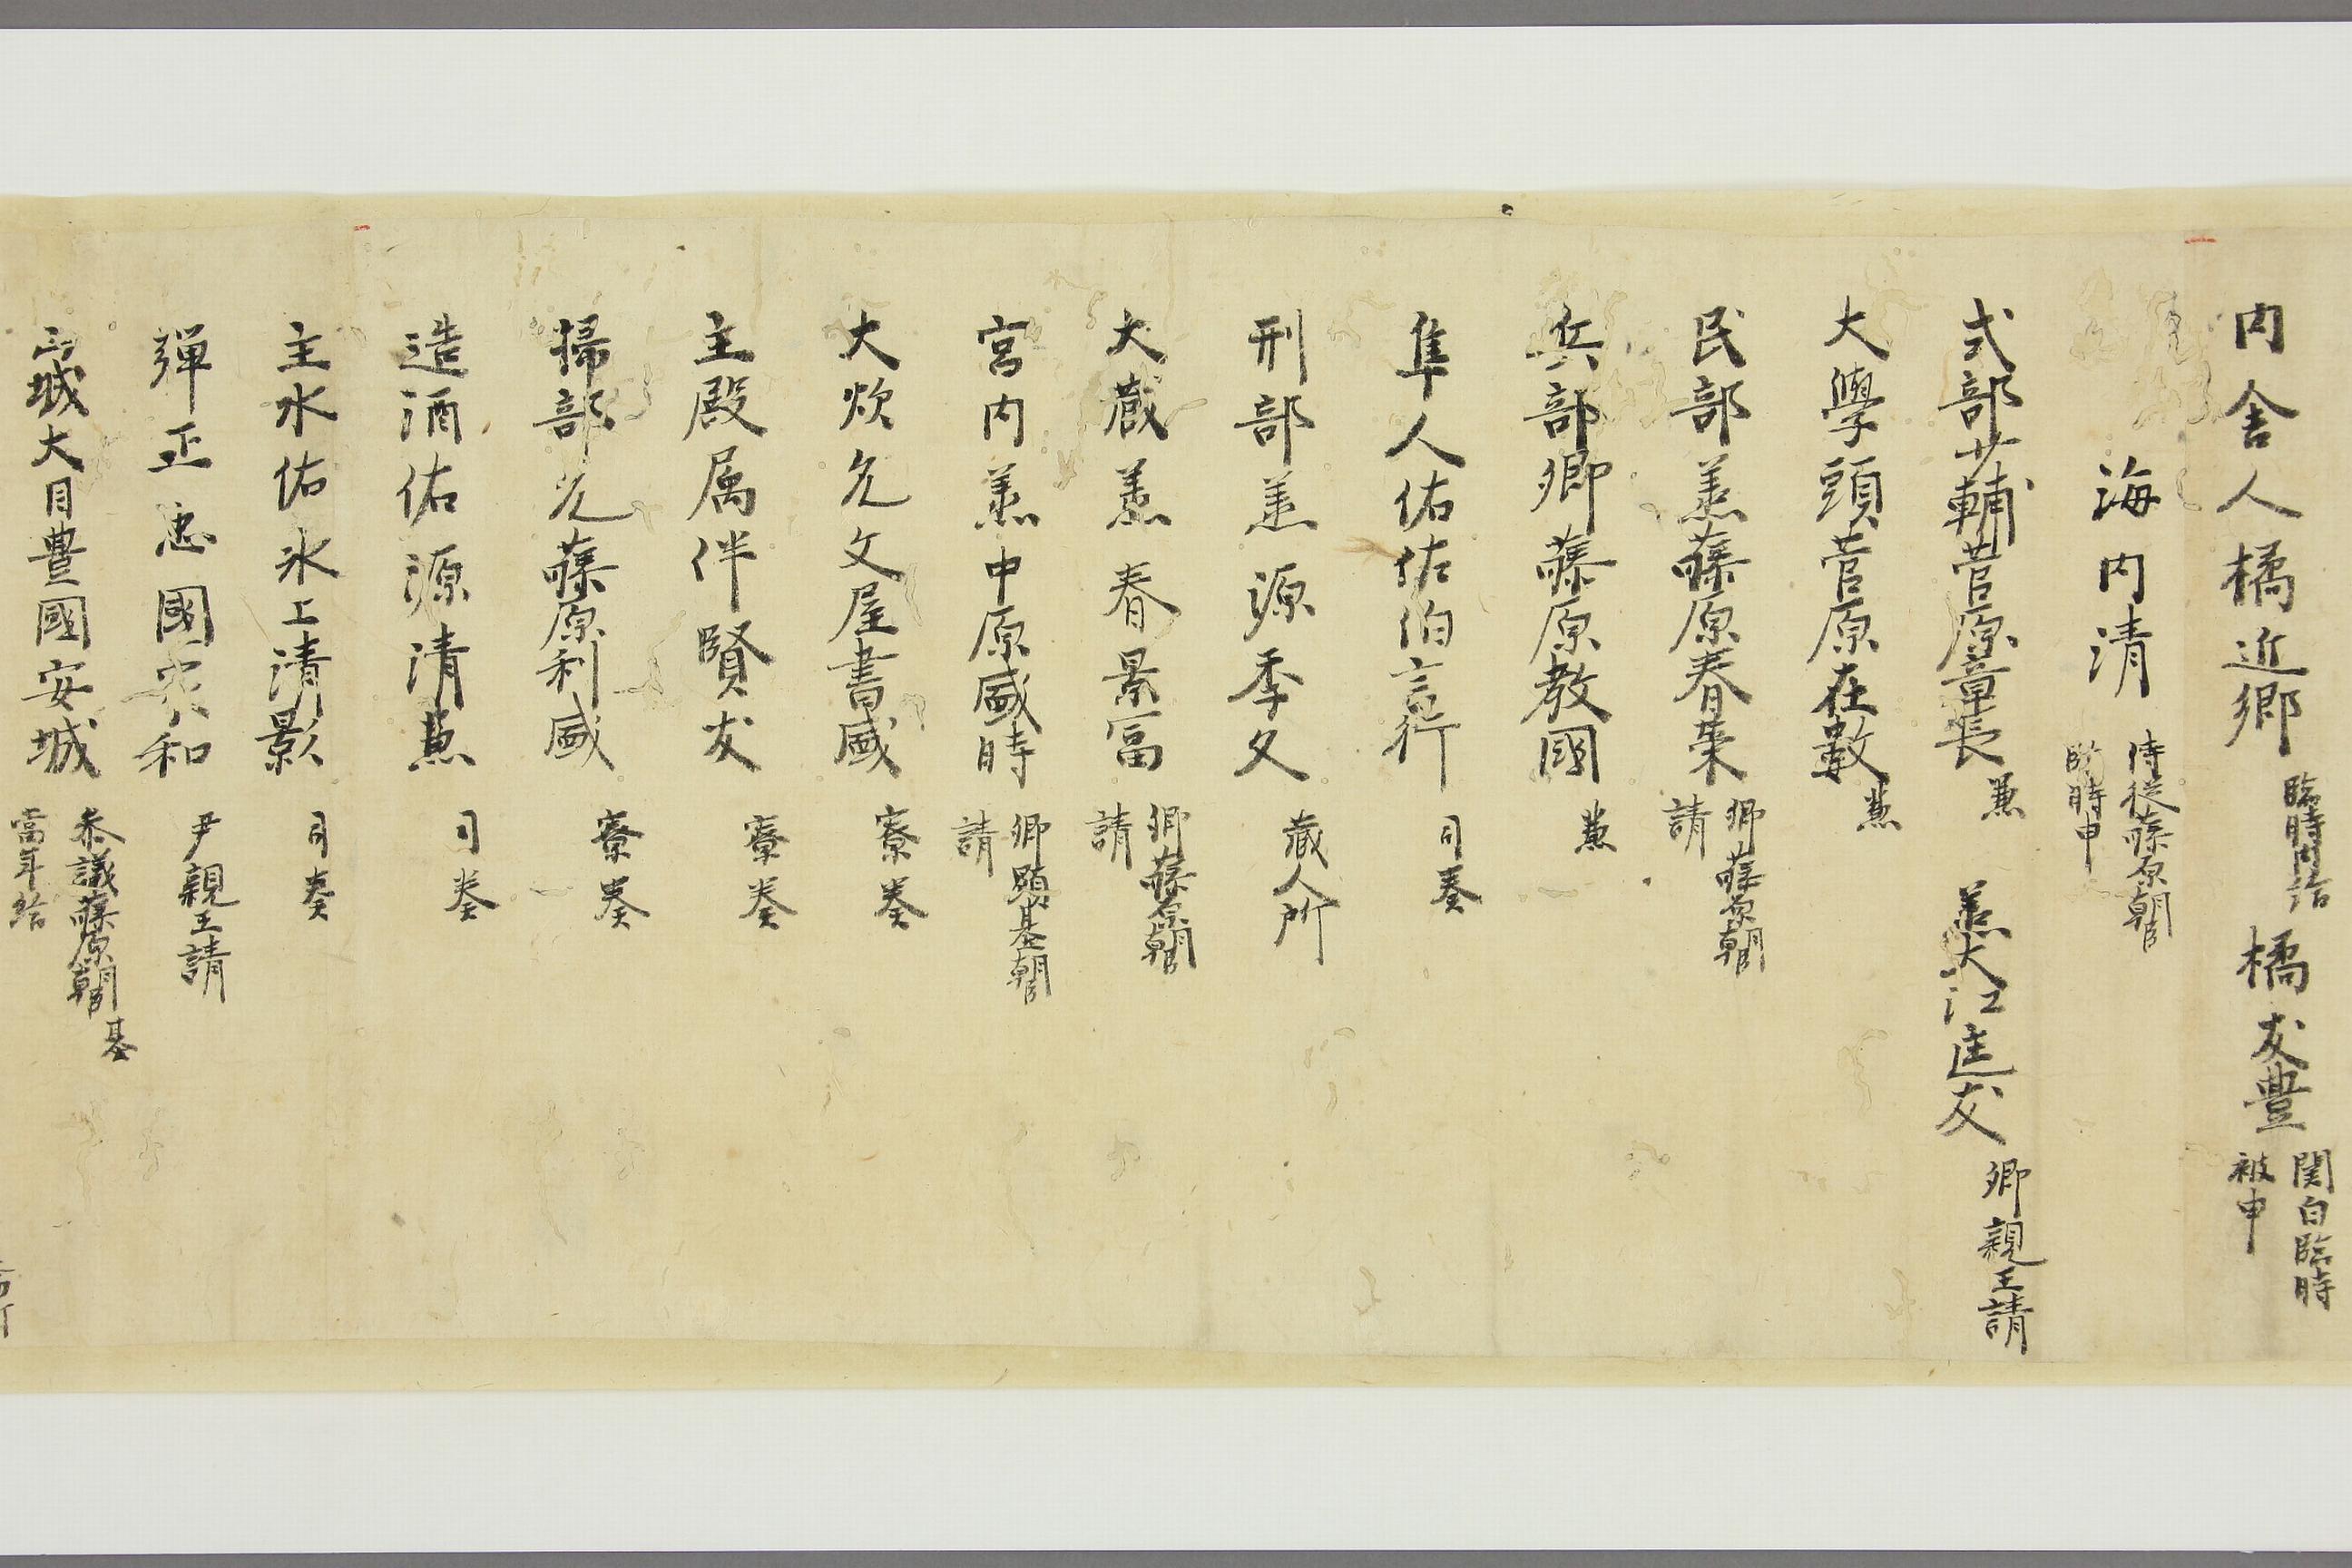 内舎人橘近郷 臨時内給 橘友豊 関白臨時被申
海内清 侍従藤原朝臣臨時申
式部少輔菅原章長 兼 丞大江匡友 卿親王請
大學頭菅原在數 兼
民部丞藤原春葉 卿藤原朝臣請
兵部卿藤原教國 兼
隼人佑佐伯言行 司奏
刑部丞源季久 蔵人所
大蔵丞春景冨 卿藤原朝臣請
宮内丞中原盛時 卿顕基朝臣請
大炊允文屋書盛 寮奏
主殿属伴賢友 寮奏
掃部允藤原利盛 寮奏
造酒佑源清兼 司奏
主水佑氷上清影 司奏
弾正忠國家和 尹親王請
山城大目豊國安城 参議藤原朝臣基當年給